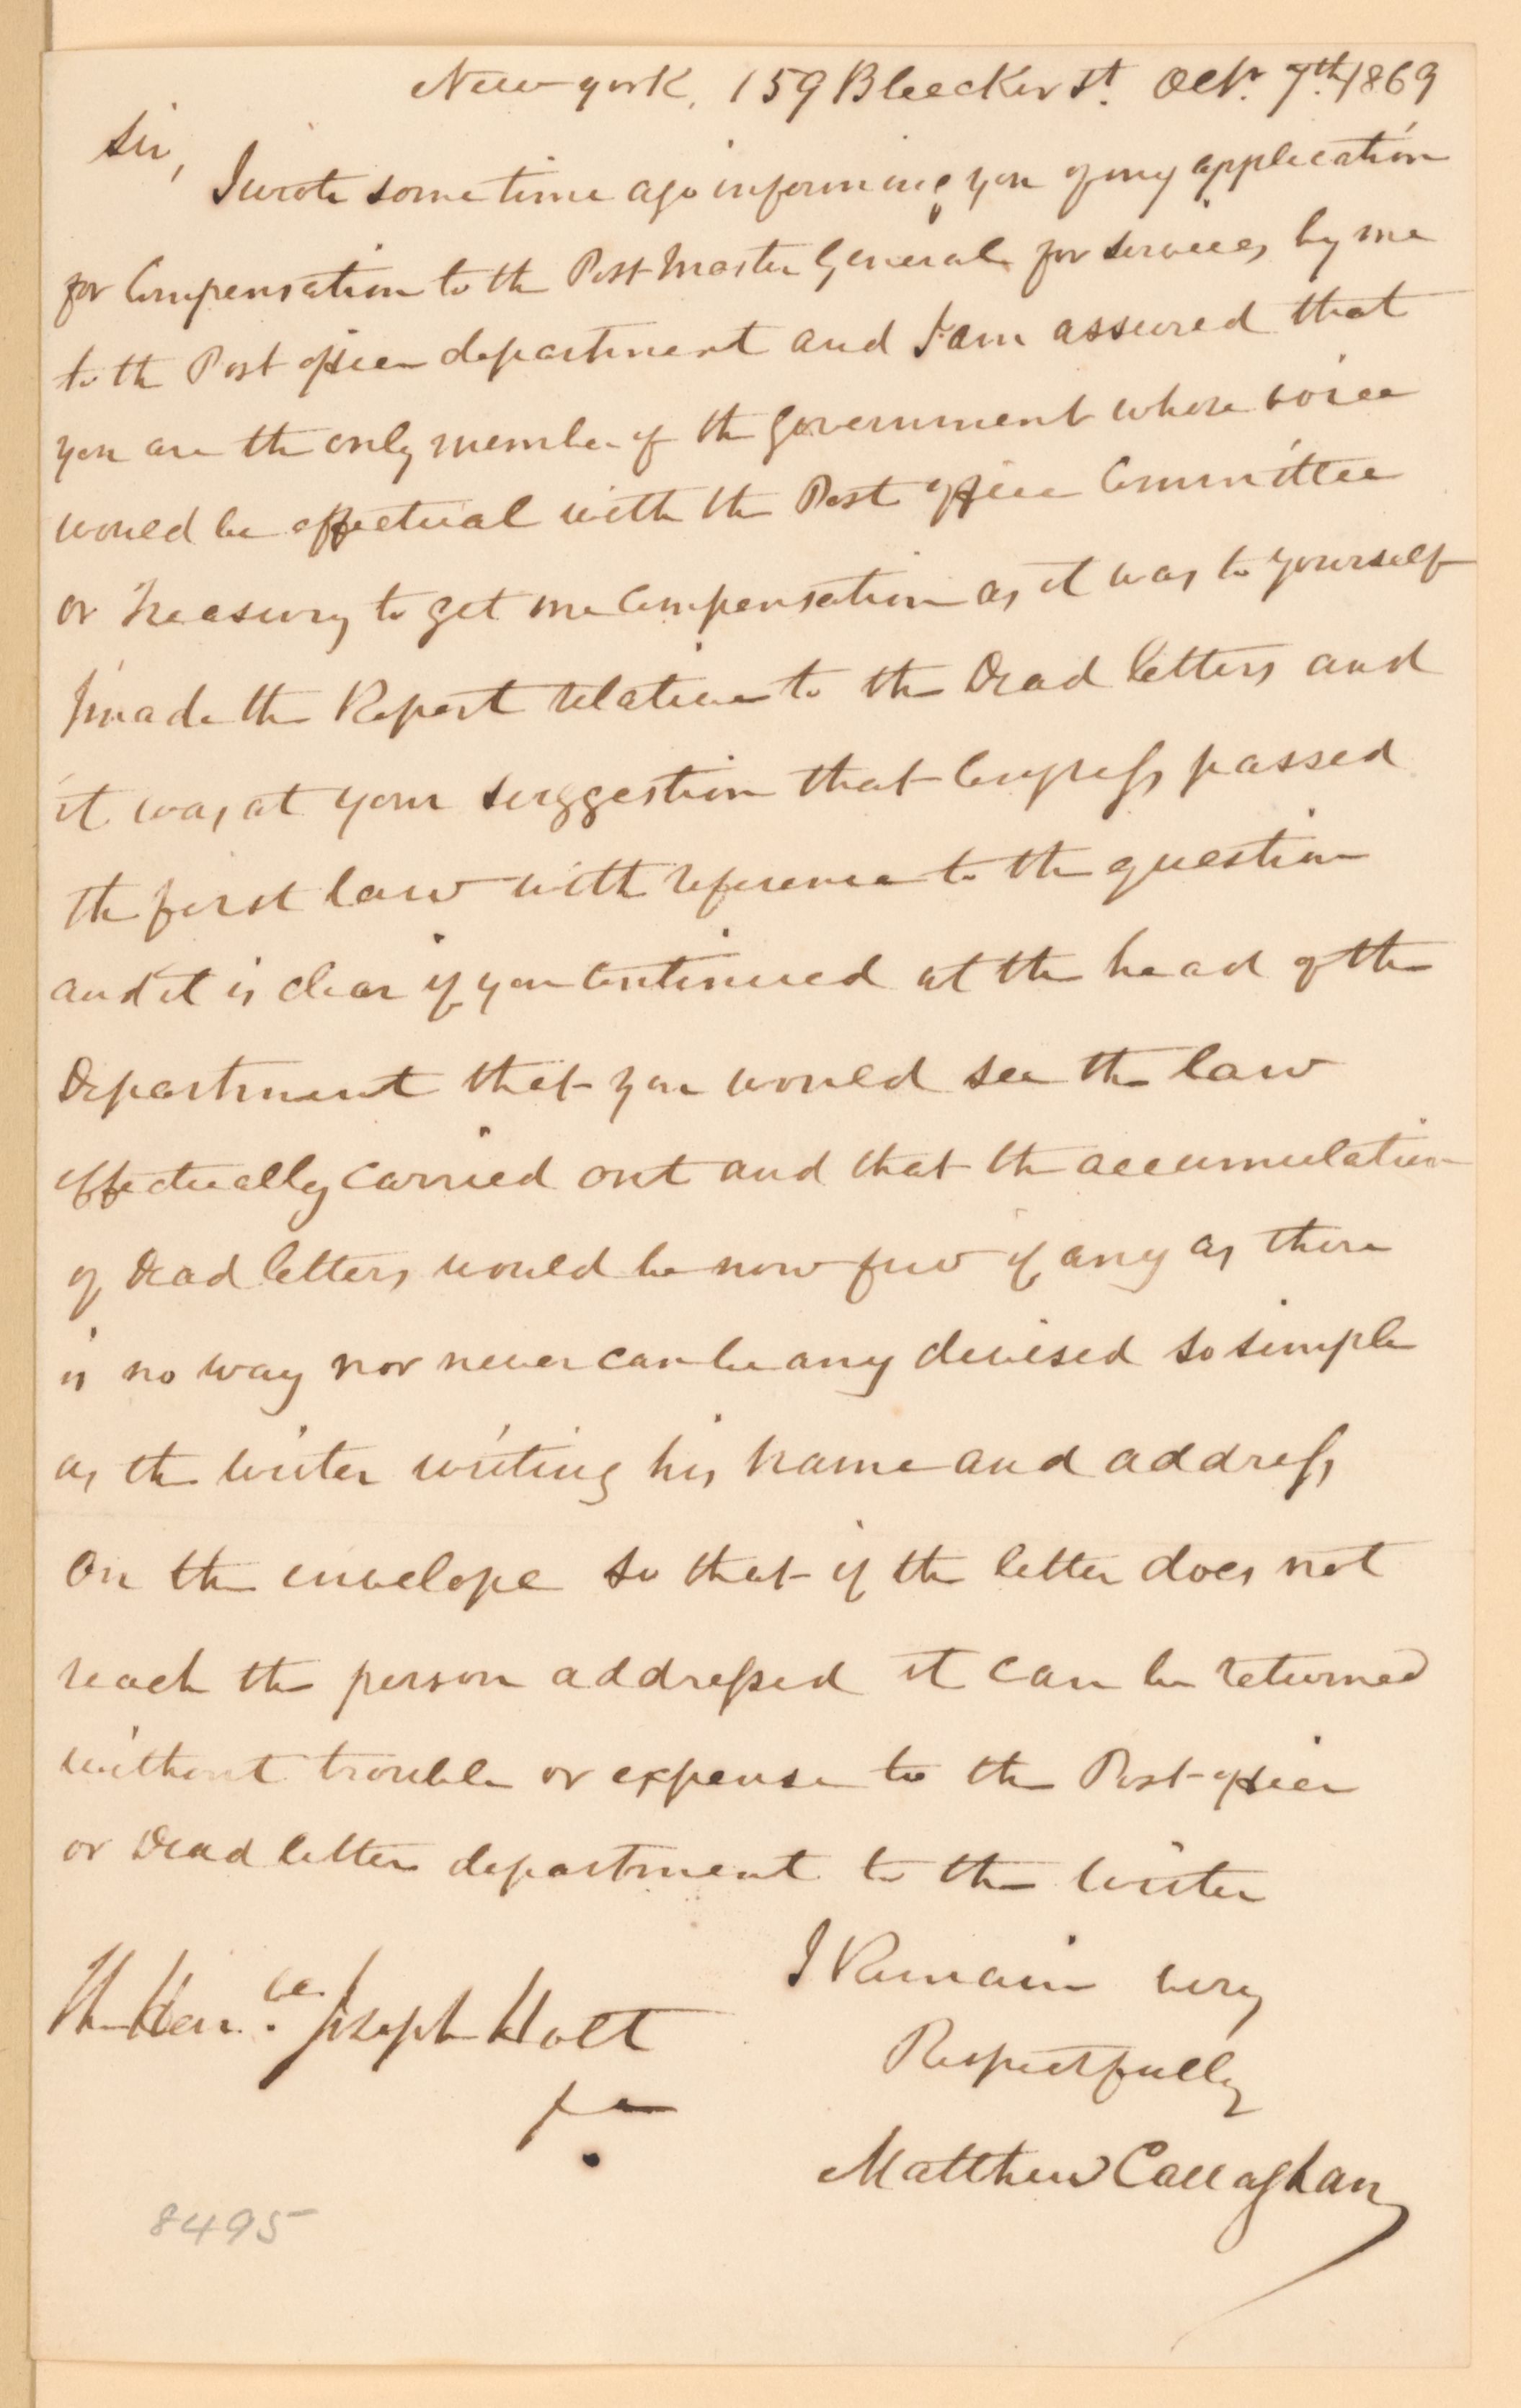 New york, 159 Bleecker St. Octr. 7th. 1869
Sir,
I wrote some time ago informing you of my application
for Compensation to the Post Master General for services by me
to the Post office department and I am assured that
you are the only member of the Government whose voice
would be effectual with the Post office Committee
or Treasury to get me Compensation as it was to yourself
I made the Report relative to the Dead letters and
it was at your suggestion that Congress passed
the first law with reference to the question
and it is clear if you Continued at the head of the
Department that you would see the law
effectually carried out and that the accumulation
of Dead letters would be now few if any as there
is no way nor never can be any devised so simple
as the writer writing his name and address
on the envelope so that if the letter does not
reach the person addressed it can be returned
without trouble or expense to the Post-office
or Dead letter department to the writer
I Remain very
Respectfully
Matthew Callaghan
The Hon.ble Joseph Holt
8495